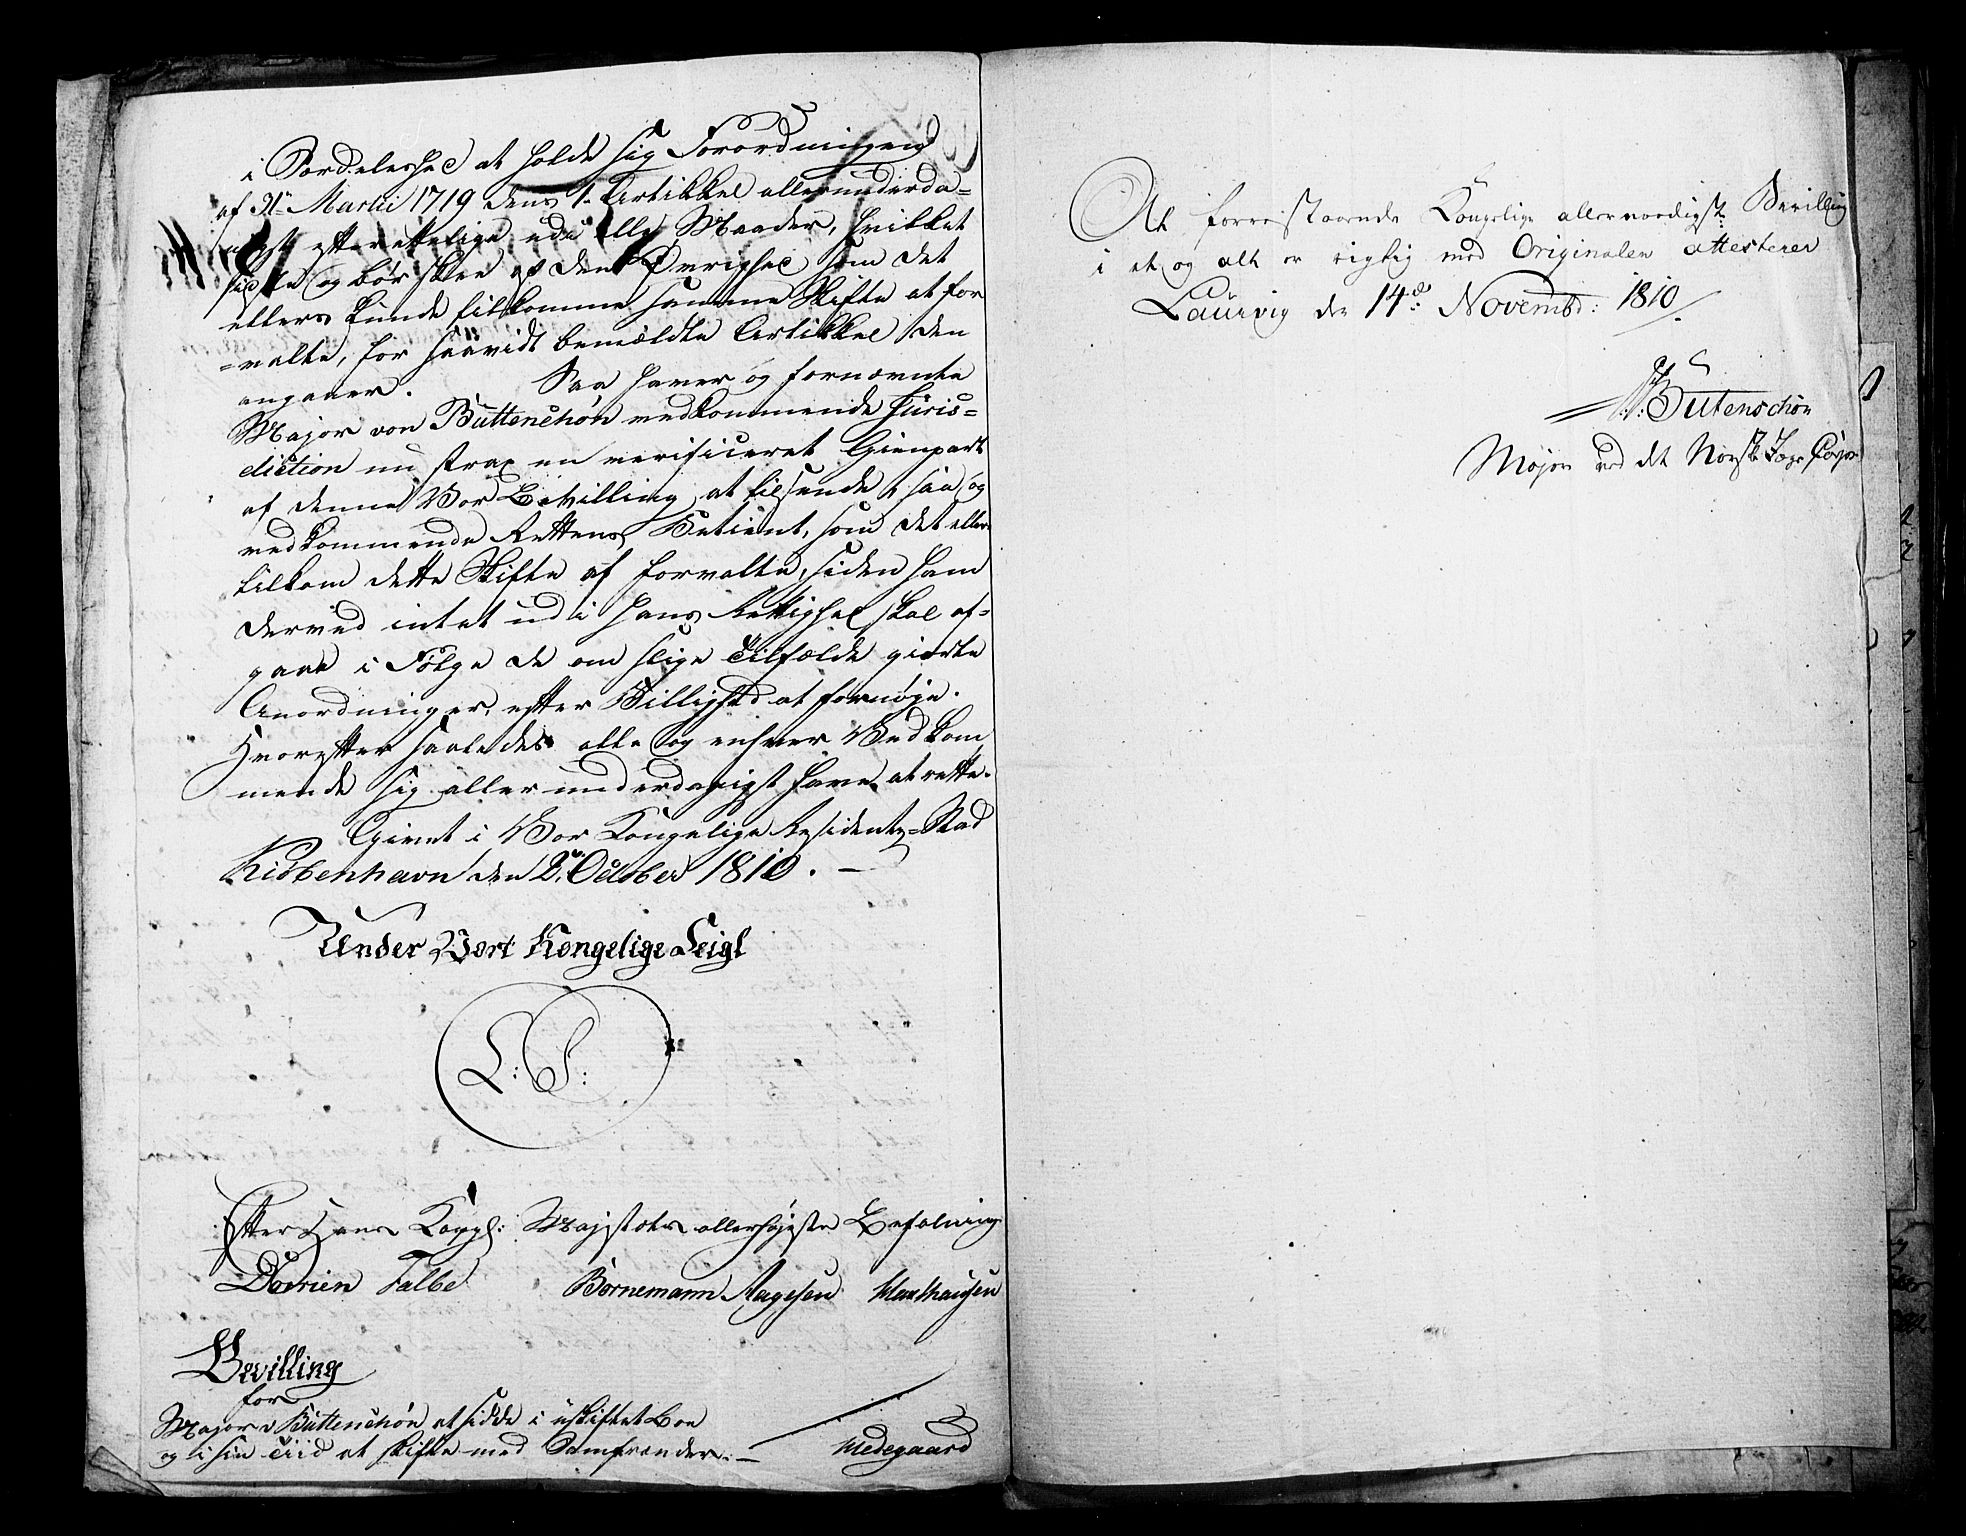 i Særdeleshed at holde sig Forordningen
af 21de Martii 1719 dens 1. Artikkel allerunderda-
nigst efterrettelige udi alle Maader, hvilket
sidste og bør skee af den Øvrighed som det
ellers kunde tilkomme samme Skifte at for
=valte, for saavidt bemældte Artikkel den
angaaer. Saa haver og fornævnte
Major von Buttenschøn vedkommende Juris-
diction nu strax en verificeret Gienpart
af denne Vor Bevilling at tilsende, saa og
vedkommende Rettens Betient, som det eller
tilkom dette Skifte at forvalte, siden ham
derved intet udi hans Rettighed skal af-
gaae i Følge de om slige Tilfælde giorte
Anordninger, efter Billighed at fornøje.
Hvorefter saaledes alle og enhver Vedkom
mende sig allerunderdanigst have at rette.
Givet i Vor Kongelige Residentz-Stad
Kiøbenhavn den 2. October 1810. —
Under Vort Kongelige Seigl
L: S:
Efter Hans Kongl: Majestæts allerhøjeste Befalning
Falbe Bornemann Aagesen Monthausen
Bevilling
for
Major v Buttenschøn at sidde i uskiftet Boe
og i sin Tiid at skifte med Samfrænder. —
Wedegaard
At forrestaaende Kongelige allernaadigst Bevilling
i et og alt er rigtig med Originalen attesterer
Laurvig den 14de Novembr: 1810
Butenschøn
Major ved det Norske Jæger Corps